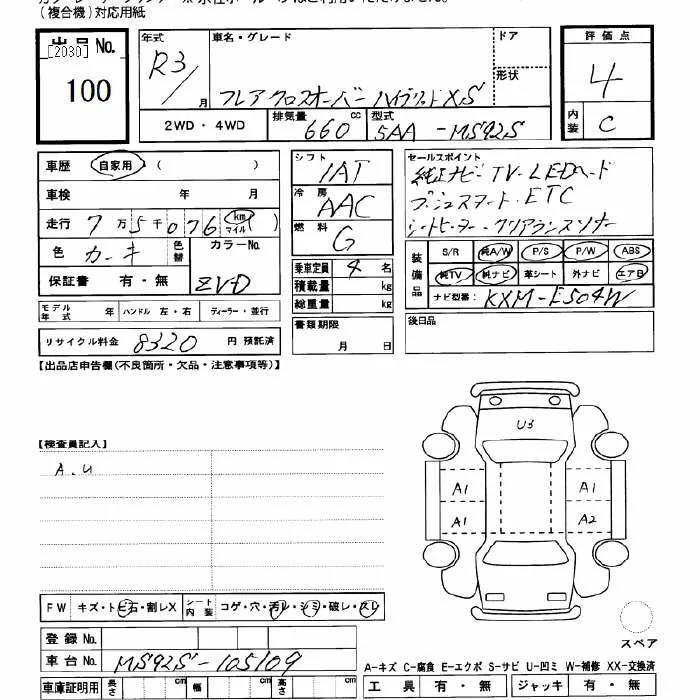 (複合機)対応用紙
出品 No.
[2030]
100
年式
R3/
月
車名・グレード
フレアクロスオーバー ハイブリッドXS
ドア
形状
評価点
4
内装
C
2WD・4WD
排気量
660
cc
型式
5AA-MS92S
車歴 自家用 ( )
車検 年 月
走行 7万5千076 km マイル )
色 カーキ
色替
カラーNo.
ZVD
保証書 有・無
シフト
IAT
冷房
AAC
燃料
G
乗車定員 4 名
積載量 kg
総重量 kg
セールスポイント
純正ナビ・TV・LEDヘッド
プッシュスタート・ETC
シートヒーター・クリアランスソナー
装備品
S/R 純A/W P/S P/W ABS
純TV 純ナビ 革シート 外ナビ エアB
ナビ型番: KXM-E504W
モデル年式 年 ハンドル 左・右 ディーラー・並行
書類期限
月 日
後日品
リサイクル料金 8320 円 預託済
【出品店申告欄(不良箇所・欠品・注意事項等)】
【検査員記入】
A.U
U3
A1 A1
A1 A2
スペア
FW キズ・トビ石・割レX
シート内装 コゲ・穴・汚レ・シミ・破レ・スレ
登録No.
車台No. MS92S-105109
A-キズ C-腐食 E-エクボ S-サビ U-凹ミ W-補修 XX-交換済
車庫証明用 長さ cm 幅 cm 高さ cm
工具 有・無 ジャッキ 有・無